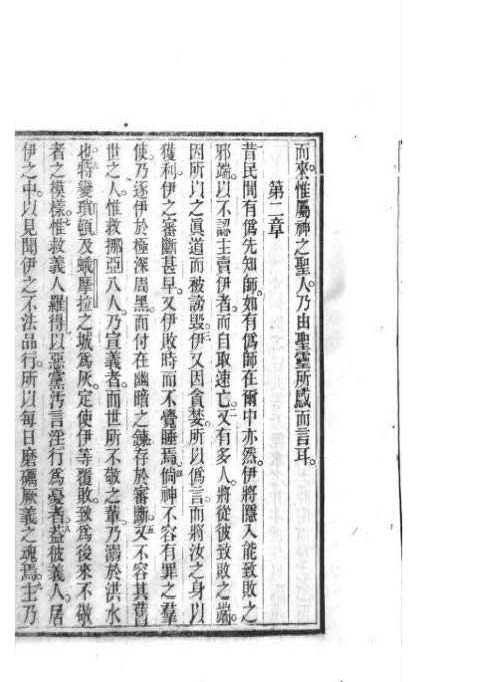 而來惟屬神之聖人乃由聖靈所感而言耳
第二章
昔民間有偽先知師如有偽師在爾中亦然伊將隱入能致敗之
邪端以不認主賣伊者而自取速亡二又有多人將從彼致敗之端
因所以之眞道而被謗毀伊三又因貪婪所以偽言而將汝之身以
獲利伊之審斷甚早又伊敗時而不覺睡焉四倘神不容有罪之羣
使乃逐伊於極深周黑而付在幽暗之鏈存於審斷又五不容其舊
世之人惟救挪亞八人乃宣義者而世所不敬之輩乃溺於洪水
也六特變瑣頓及蛾摩拉之城爲灰定使伊等覆敗致爲後來不敬
者之模樣七惟救義人羅得以惡黨汚言淫行爲憂者八蓋彼義人居
伊之中以見聞伊之不法品行所以每日磨礪厥義之魂焉九主乃